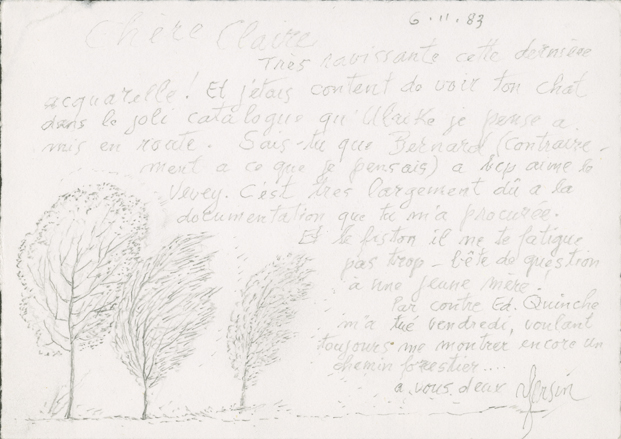 6.11.83
Chère Claire
Très ravissante cette dernière
acquarelle! Et j'étais content de voir ton chat
dans le joli catalogue qu'Ulrike je pense a
mis en route. Sais-tu que Bernard (contraire-
ment a ce que je pensais) a bcp aimé le
Vevey. C'est très largement dû a la
documentation que tu m'a procurée.
Et le fiston il ne te fatigue
pas trop - bête de question
a une jeune mère.
Par contre Ed. Quinche
m'a tué vendredi, voulant
toujours me montrer encore un
chemin forestier....
a vous deux